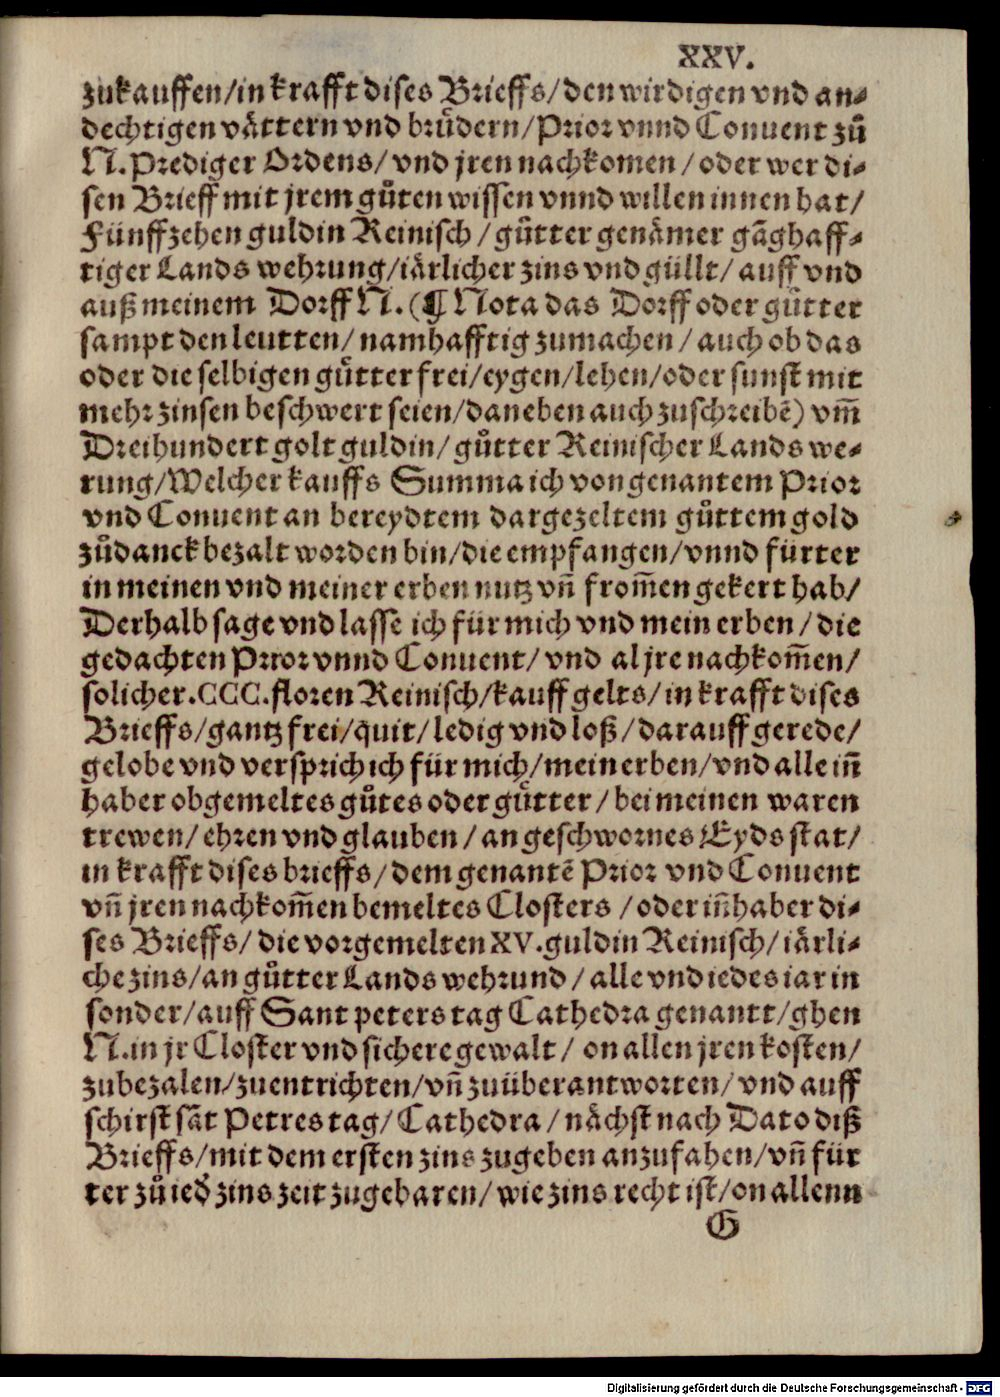 XXV.
zukauffen/in krafft dises Brieffs/den wirdigen vnd an⸗
dechtigen vättern vnd bruͤdern/Prior vnnd Conuent zuͦ
N. Prediger Ordens/vnd jren nachkomen/oder wer di⸗
sen Brieff mit jrem guͦten wissen vnnd willen innen hat/
Fünffzehen guldin Reinisch/guͦtter genämer gãghaff⸗
tiger Lands wehrung/iärlicher zins vnd güllt/auff vnd
auß meinem Dorff N. (¶ Nota das Dorff oder guͤtter
sampt den leutten/namhafftig zumachen/auch ob das
oder die selbigen guͤtter frei/eygen/lehen/oder sunst mit
mehr zinsen beschwert seien/daneben auch zuschreibẽ) vm̃
Dreihundert golt guldin/guͦtter Reinischer Lands we⸗
rung/Welcher kauffs Summa ich von genantem Prior
vnd Conuent an bereydtem dargezeltem guͦttem gold
zuͦdanck bezalt worden bin/die empfangen/vnnd fürter
in meinen vnd meiner erben nutz vñ from̃en gekert hab/
Derhalb sage vnd lasse ich für mich vnd mein erben/die
gedachten Prior vnnd Conuent/vnd al jre nachkom̃en/
solicher.CCC.floren Reinisch/kauff gelts/in krafft dises
Brieffs/gantz frei/quit/ledig vnd loß/darauff gerede/
gelobe vnd versprich ich für mich/mein erben/vnd alle iñ
haber obgemeltes guͦtes oder guͤtter/bei meinen waren
trewen/ehren vnd glauben/an geschwornes Eyds stat/
in krafft dises brieffs/dem genantẽ Prior vnd Conuent
vñ jren nachkom̃en bemeltes Closters/oder iñhaber di⸗
ses Brieffs/die vorgemelten XV.guldin Reinisch/iärli⸗
che zins/an guͦtter Lands wehrund/alle vnd iedes iar in
sonder/auff Sant peters tag Cathedra genantt/ghen
N.in jr Closter vnd sichere gewalt/on allen jren kosten/
zubezalen/zuentrichten/vñ zuüberantworten/vnd auff
schirst sãt Petres tag/Cathedra/nächst nach Dato diß
Brieffs/mit dem ersten zins zugeben anzufahen/vñ für
ter zuͦ ied̕ zins zeit zugebaren/wie zins recht ist/on allenn
G
Digitalisierung gefördert durch die Deutsche Forschungsgemeinschaft - DFG